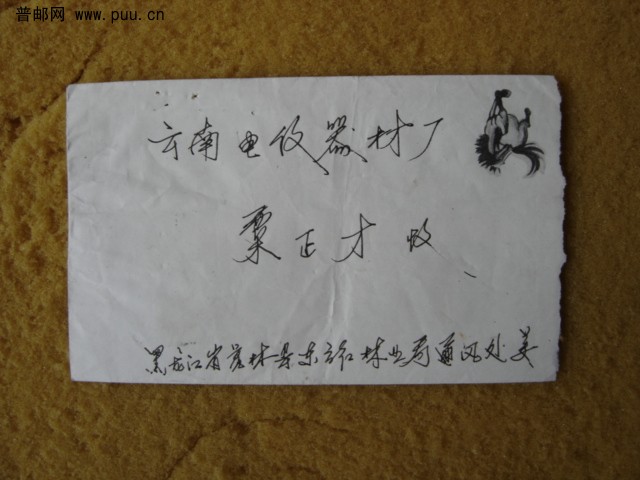 普邮网 www.puu.cn
云南电仪器材厂
粟正才收
黑龙江省虎林县东方红林业局通风处姜